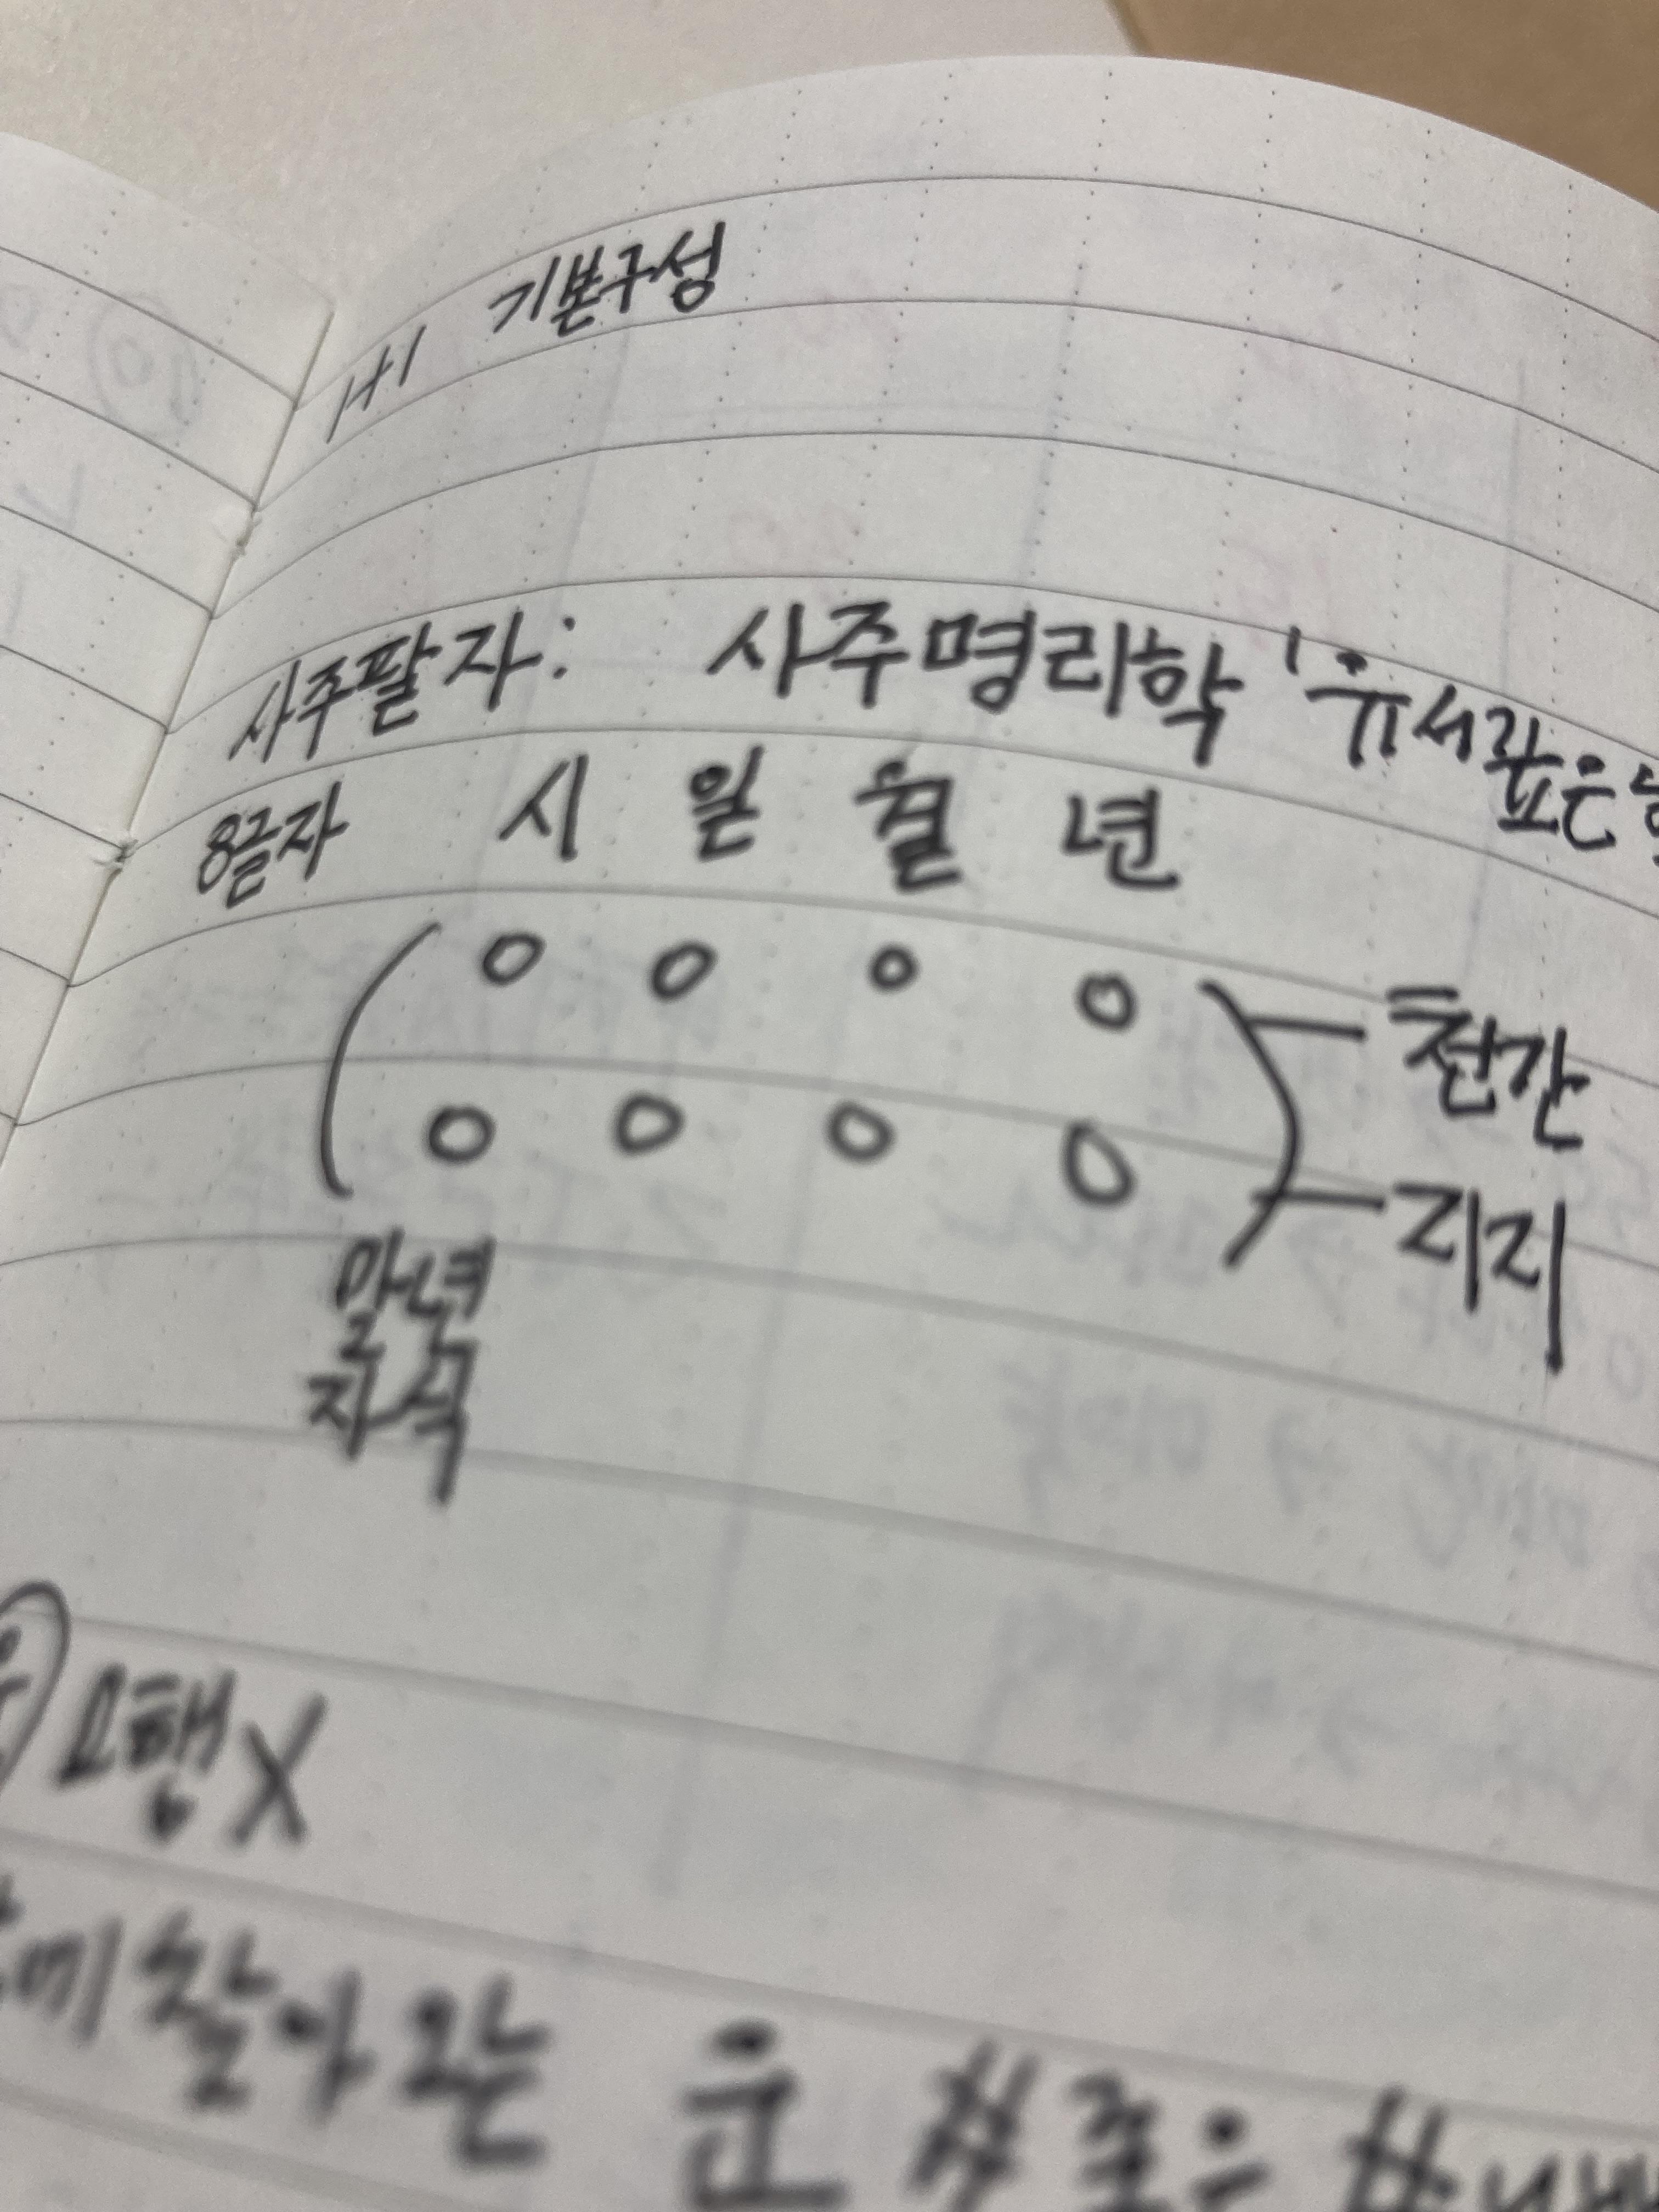 1+1 기본구성
사주팔자: 사주명리학 '유서
8글자 시 일 월 년
천간
지지
말년
자식
요행X
찾아오는 운 #좋은